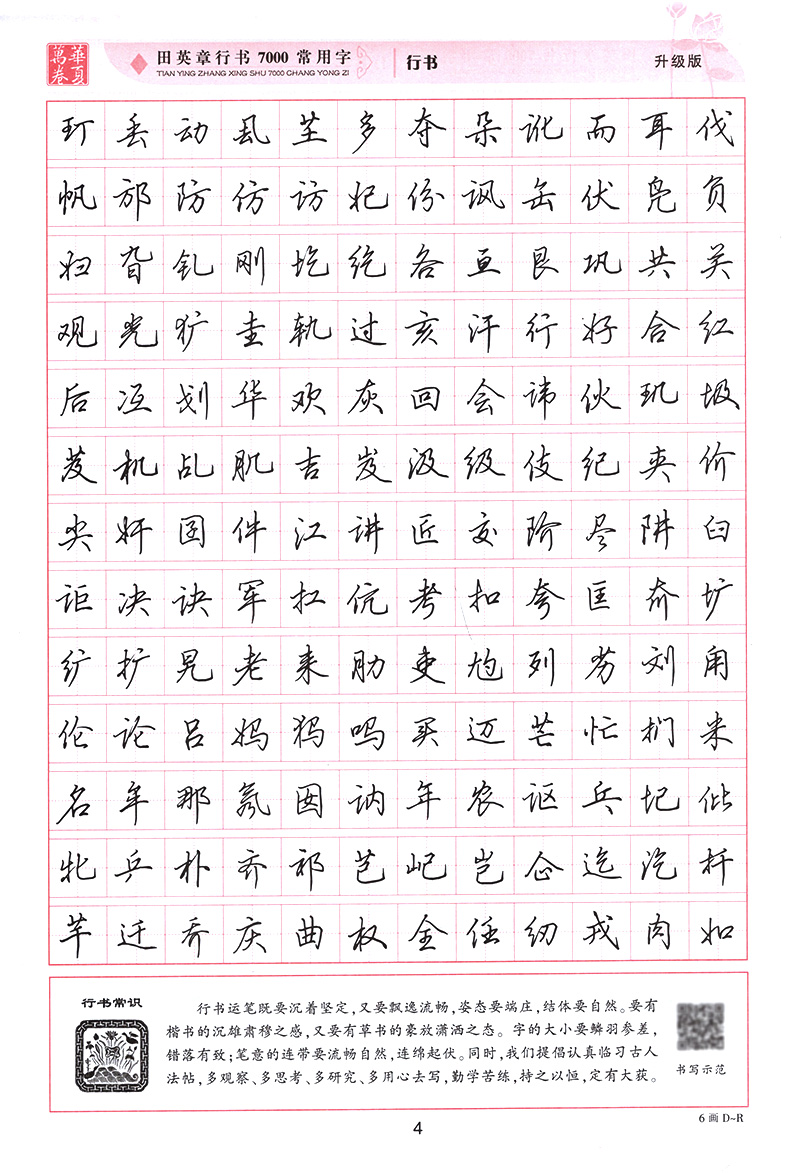 萬卷 華夏
田英章行书 7000 常用字
TIAN YING ZHANG XING SHU 7000 CHANG YONG ZI
行书
升级版
玎 丢 动 芏 多 夺 朵 讹 而 耳 伐
帆 邡 防 仿 访 妃 份 讽 缶 伏 凫 负
妇 旮 钆 刚 圪 纥 各 亘 艮 巩 共 关
观 光 犷 圭 轨 过 亥 汗 行 好 合 红
后 冱 划 华 欢 灰 回 会 讳 伙 玑 圾
芨 机 乩 肌 吉 岌 汲 级 伎 纪 夹 价
尖 奸 囝 件 江 讲 匠 交 阶 尽 阱 臼
讵 决 诀 军 扛 伉 考 扣 夸 匡 夼 圹
纩 扩 旯 老 耒 肋 吏 尥 列 劣 刘 甪
伦 论 吕 妈 犸 吗 买 迈 芒 忙 扪 米
名 牟 那 氖 囡 讷 年 农 讴 乓 圮 仳
牝 乒 朴 齐 祁 芑 屺 岂 企 迄 汔 扦
芊 迁 乔 庆 曲 权 全 任 纫 戎 肉 如
行书常识
行书运笔既要沉着坚定，又要飘逸流畅，姿态要端庄，结体要自然。要有
楷书的沉雄肃穆之感，又要有草书的豪放潇洒之态。字的大小要鳞羽参差，
错落有致；笔意的连带要流畅自然，连绵起伏。同时，我们提倡认真临习古人
法帖，多观察、多思考、多研究、多用心去写，勤学苦练，持之以恒，定有大获。
书写示范
6画 D~R
4